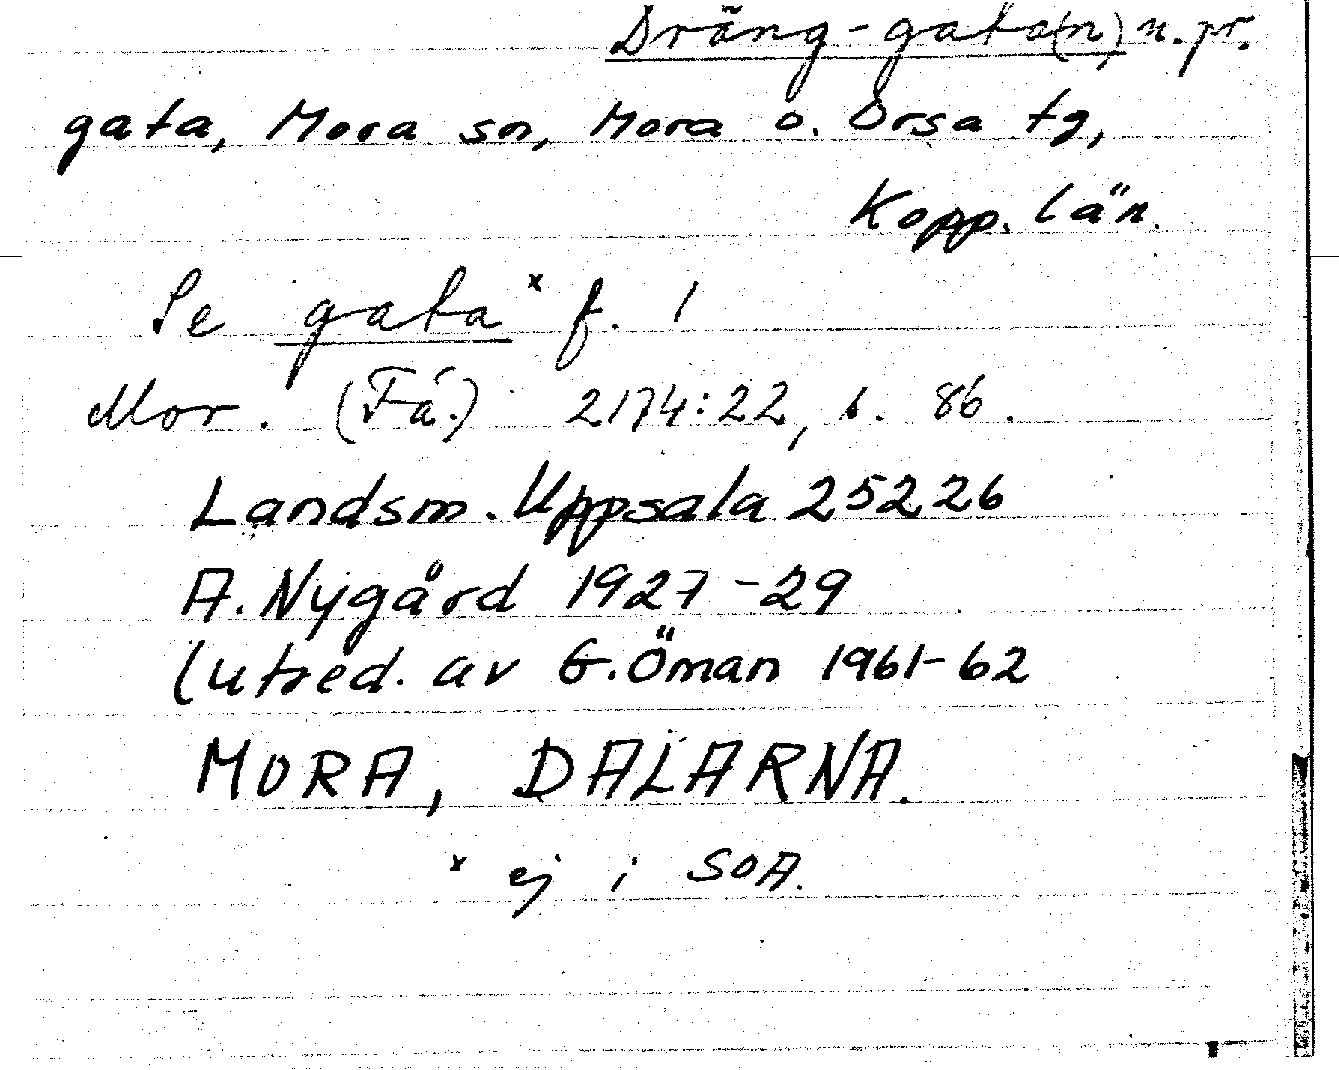 Dräng-gata(n) n. pr.
gata, Mora sn, Mora o. Orsa tg,
Kopp. län.
Se gata x f. 1
Mor. (Få.) 2174:22, s. 86.
Landsm. Uppsala 25226
A. Nygård 1927-29
(utred. av G. Öman 1961-62
MORA, DALARNA.
x ej i SOA.